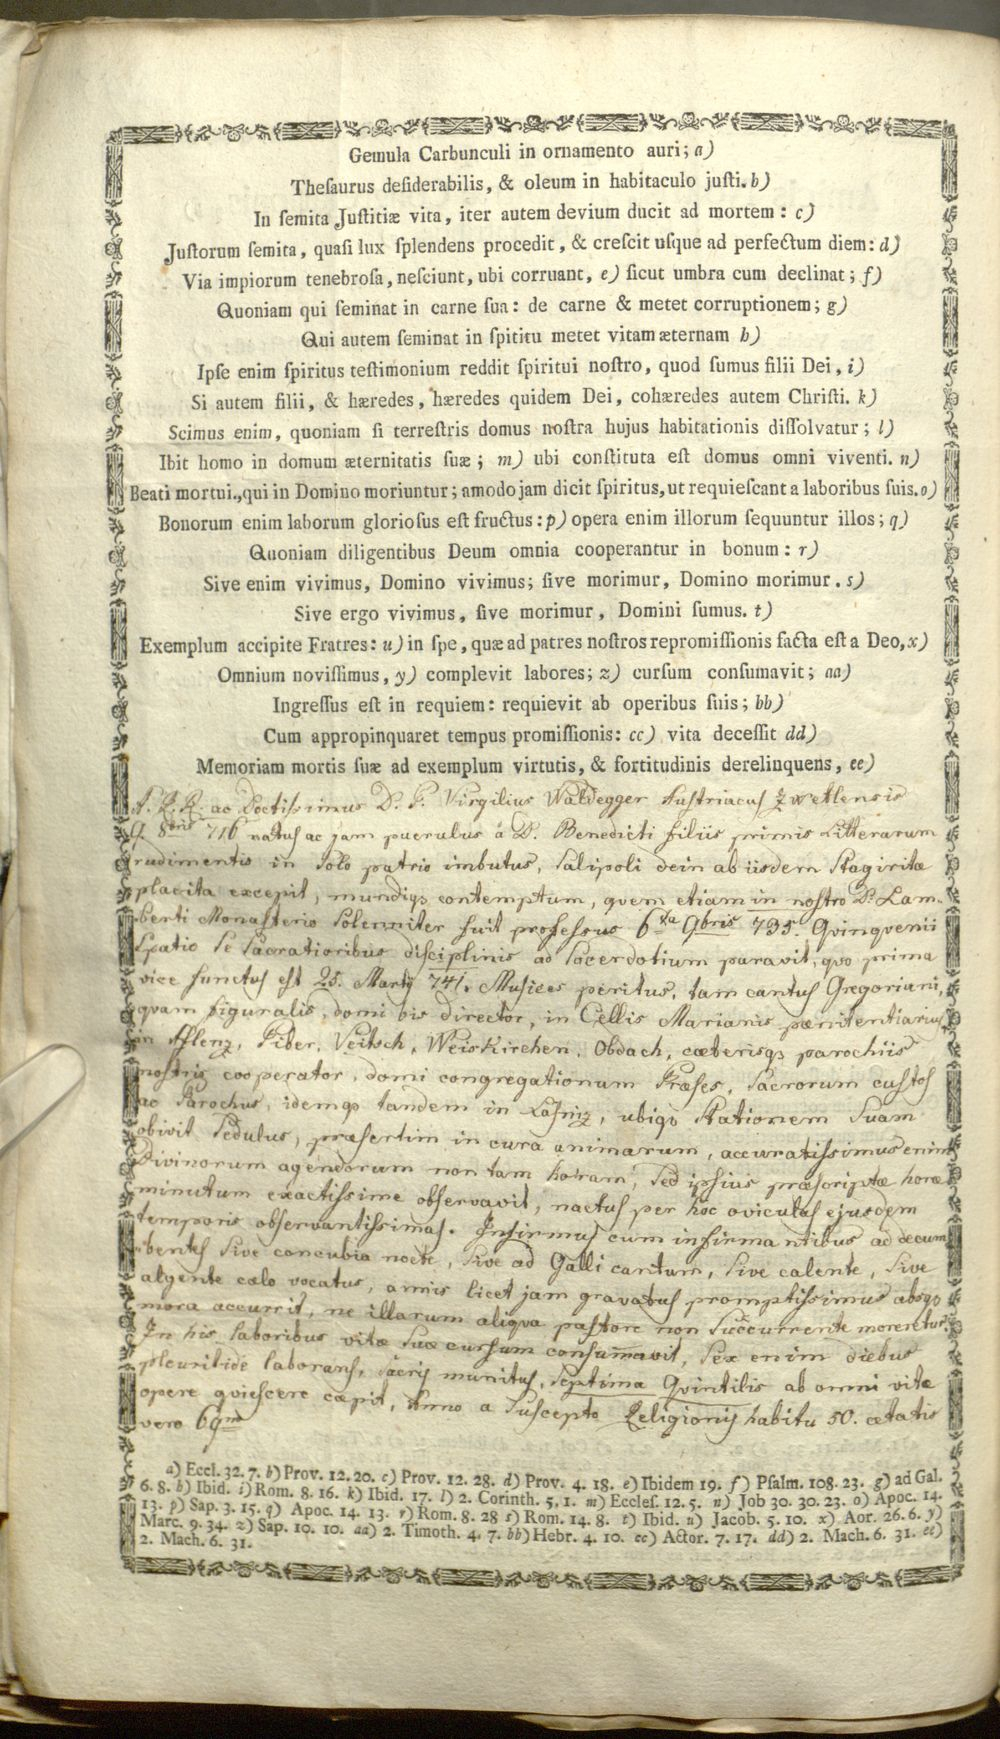 Gemula Carbunculi in ornamento auri; a)
Theſaurus deſiderabilis, & oleum in habitaculo juſti. b)
In ſemita Juſtitiæ vita, iter autem devium ducit ad mortem: c)
Juſtorum ſemita, quaſi lux ſplendens procedit, & creſcit uſque ad perfectum diem: d)
Via impiorum tenebroſa, neſciunt, ubi corruant, e) ſicut umbra cum declinat; f)
Quoniam qui ſeminat in carne ſua: de carne & metet corruptionem; g)
Qui autem ſeminat in ſpititu metet vitam æternam h)
Ipſe enim ſpiritus teſtimonium reddit ſpiritui noſtro, quod ſumus filii Dei, i)
Si autem filii, & hæredes, hæredes quidem Dei, cohæredes autem Chriſti. k)
Scimus enim, quoniam ſi terreſtris domus noſtra hujus habitationis diſſolvatur; l)
Ibit homo in domum æternitatis ſuæ; m) ubi conſtituta eſt domus omni viventi. n)
Beati mortui., qui in Domino moriuntur; amodo jam dicit ſpiritus, ut requieſcant a laboribus ſuis. o)
Bonorum enim laborum glorioſus eſt fructus: p) opera enim illorum ſequuntur illos; q)
Quoniam diligentibus Deum omnia cooperantur in bonum: r)
Sive enim vivimus, Domino vivimus; ſive morimur, Domino morimur. s)
Sive ergo vivimus, ſive morimur, Domini ſumus. t)
Exemplum accipite Fratres: u) in ſpe, quæ ad patres noſtros repromiſſionis facta eſt a Deo, x)
Omnium noviſſimus, y) complevit labores; z) curſum conſumavit; aa)
Ingreſſus eſt in requiem: requievit ab operibus ſuis; bb)
Cum appropinquaret tempus promiſſionis: cc) vita deceſſit dd)
Memoriam mortis ſuæ ad exemplum virtutis, & fortitudinis derelinquens, ee)
A. R. R. ac Doctissimus D. P. Virgilius Waldegger Austriacus Zwetlensis
9. 8bris 716 natus ac jam puerulus a D. Benedicti filiis primis Litterarum
rudimentis in solo patrio imbutus, Salipoli dein ab iisdem Stagiritæ
placita excepit, mundiqȝ contemptum, quem etiam in nostro Di Lam-
berti Monasterio Solenniter fuit professus 6ta 9bris 735. Quinquenii
Spatio Se Sacratioribus disciplinis ad Sacerdotium paravit, quo prima
vice functus est 25. Martij 741. Musices peritus, tam cantus Gregoriani,
quam figuralis, domi bis director, in Cellis Marianis pœnitentiarius,
in Aflenz, Piber, Veitsch, Weiskirchen, Obdach, cæterisqȝ parochiis
nostris cooperator, domi congregationum Præses, Sacrorum custos
ac Parochus, idemqȝ tandem in Laſniz, ubiqȝ Stationem Suam
obivit Sedulus, præsertim in cura animarum, accuratissimus enim
Divinorum agendorum non tam horam, Sed ipsius præscriptæ horæ
minutum exactissime observavit, nactus per hoc oviculas ejusdem
temporis observantissimas. Infirmus cum infirmantibus ad decum-
bentes Sive concubia nocte, Sive ad Galli cantum, Sive calente, Sive
algente cælo vocatus, annis licet jam gravatus promptissimus absqȝ
mora accurrit, ne illarum aliqua pastore non Succurrente moreretur.
In his laboribus vitæ Suæ cursum consummavit, Sex enim diebus
pleuritide laborans, Sacris munitus, Septima Quintilis ab omni vitæ
opere quiescere cæpit, Anno a Suscepto Religionis habitu 50. ætatis
vero 69no
a) Eccl. 32. 7. b) Prov. 12. 20. c) Prov. 12. 28. d) Prov. 4. 18. e) Ibidem 19. f) Pſalm. 108. 23. g) ad Gal.
6. 8. h) Ibid. i) Rom. 8. 16. k) Ibid. 17. l) 2. Corinth. 5, 1. m) Eccleſ. 12. 5. n) Job 30. 30. 23. o) Apoc. 14.
13. p) Sap. 3. 15. q) Apoc. 14. 13. r) Rom. 8. 28 s) Rom. 14. 8. t) Ibid. u) Jacob. 5. 10. x) Aor. 26. 6. y)
Marc. 9. 34. z) Sap. 10. 10. aa) 2. Timoth. 4. 7. bb) Hebr. 4. 10. cc) Actor. 7. 17. dd) 2. Mach. 6. 31. ee)
2. Mach. 6. 31.